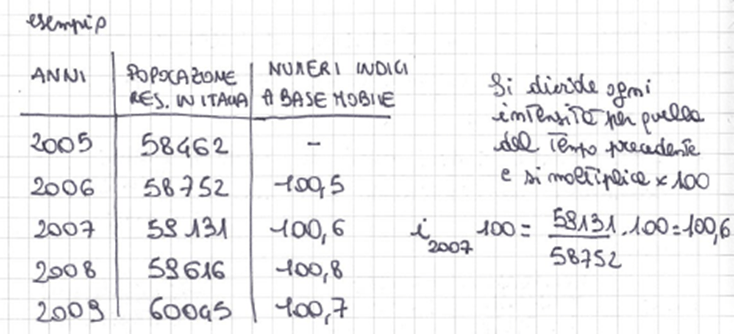 esempio
ANNI | POPOLAZIONE RES. IN ITALIA | NUMERI INDICI A BASE MOBILE
2005 | 58462 | -
2006 | 58752 | 100,5
2007 | 59131 | 100,6
2008 | 59616 | 100,8
2009 | 60045 | 100,7
Si divide ogni
intensità per quella
del tempo precedente
e si moltiplica × 100
i 2007 100 = 59131 / 58752 . 100 = 100,6